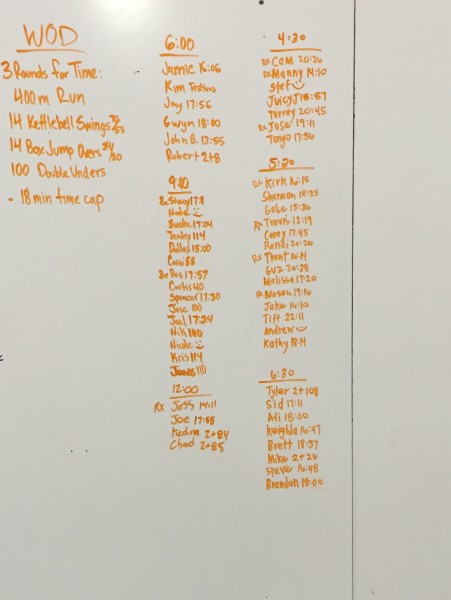 WOD
3 Rounds for Time:
400m Run
14 Kettlebell Swings
14 Box Jump Overs 24/20
100 Double Unders
- 18 min time cap
6:00
Jamie 16:06
Kim
Jay 17:56
Gwyn 18:00
John B. 13:55
Robert 2+8
9:10
Rx Stacy
Nate
17:04
114
Dallas 18:00
Cassi 58
Rx Des 17:57
Curtis 40
Spencer 17:30
Jose 100
Joel 17:24
Nik 100
Nicole
Kris 114
110
12:00
RX Jess 14:11
Joe 17:58
Kedra 2+84
Chad 2+85
4:30
Rx Cam 20:26
Rx Manny 14:10
Stef
Juicy J 18:57
Torrey 20:45
Rx Jose 19:11
Tango 17:56
5:30
Rx Kirk 16:15
Shannon 18:25
Gabe 15:36
Rx Travis 13:19
Corey 17:45
Randi 20:26
Rx Trent 16:14
Guz 20:28
Melissa 17:20
Rx Mason 19:16
Jake 16:10
Tiff 22:11
Andrew
Kathy 18:14
6:30
Tyler 2+108
Sid 17:11
Ali 18:00
Keighla 16:47
Brett 18:57
Mike 2+26
Steve 16:48
Brandon 18:00